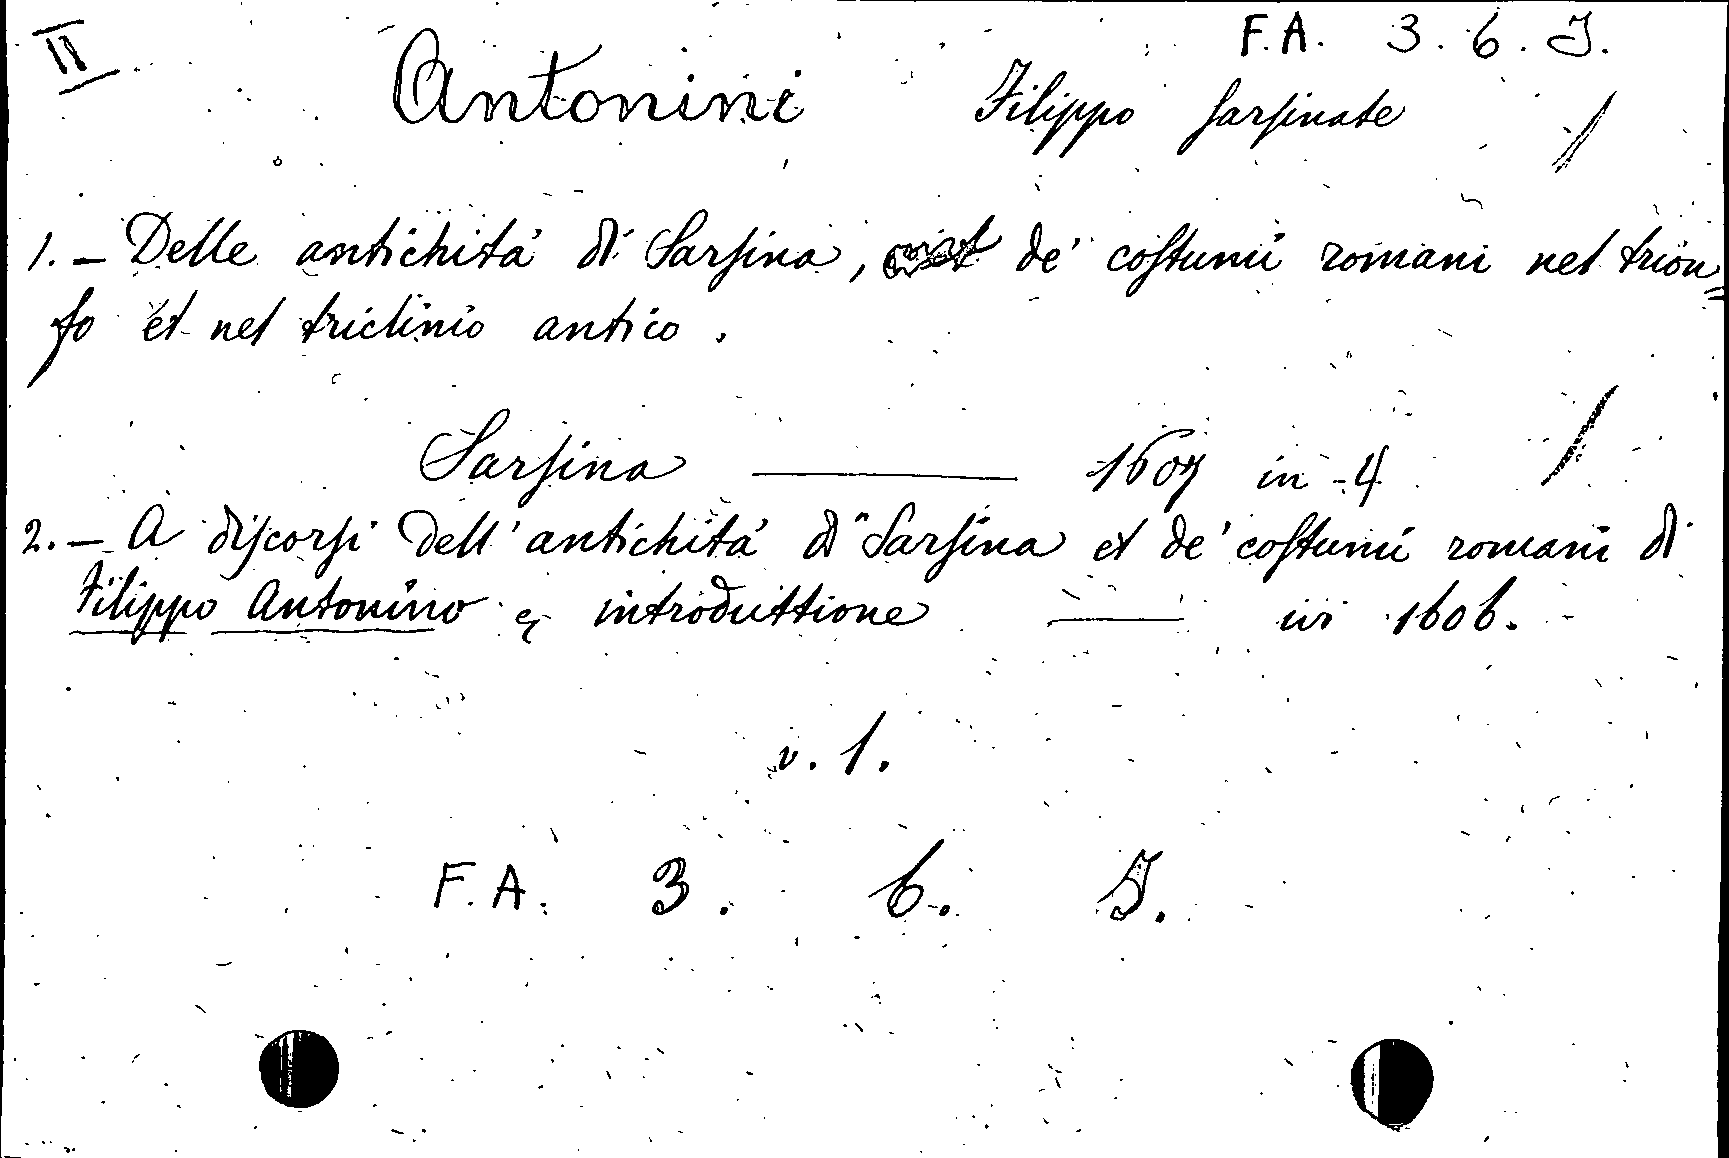 II
F.A. 3. 6. J.
Antonini Filippo sarsinate
1. - Delle antichitá di Sarsina, de' costumi romani nel trion=
fo et nel triclinio antico.
Sarsina 1607 in-4
2. - A discorsi dell'antichitá di Sarsina et de' costumi romani di
Filippo Antonino introduttione ivi 1606.
v. 1.
F.A. 3. 6. J.